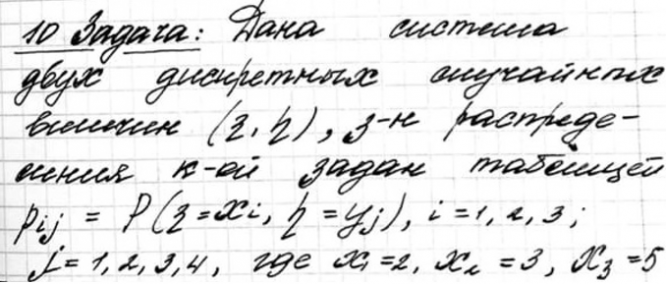 10 Задача: Дана система
двух дискретных случайных
величин (ξ, η), з-н распреде-
ления к-ой задан таблицей
pij = P(ξ=xi, η=yj), i=1,2,3;
j=1,2,3,4, где x1=2, x2=3, x3=5